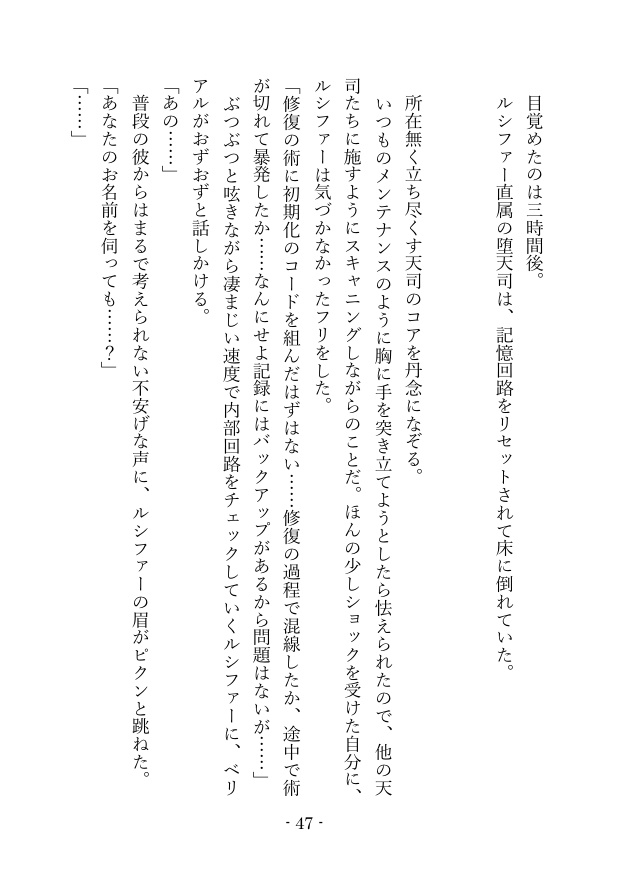 目覚めたのは三時間後。
ルシファー直属の堕天司は、記憶回路をリセットされて床に倒れていた。
所在無く立ち尽くす天司のコアを丹念になぞる。
いつものメンテナンスのように胸に手を突き立てようとしたら怯えられたので、他の天
司たちに施すようにスキャニングしながらのことだ。ほんの少しショックを受けた自分に、
ルシファーは気づかなかったフリをした。
「修復の術に初期化のコードを組んだはずはない……修復の過程で混線したか、途中で術
が切れて暴発したか……なんにせよ記録にはバックアップがあるから問題はないが……」
ぶつぶつと呟きながら凄まじい速度で内部回路をチェックしていくルシファーに、ベリ
アルがおずおずと話しかける。
「あの……」
普段の彼からはまるで考えられない不安げな声に、ルシファーの眉がピクンと跳ねた。
「あなたのお名前を伺っても……？」
「……」
- 47 -